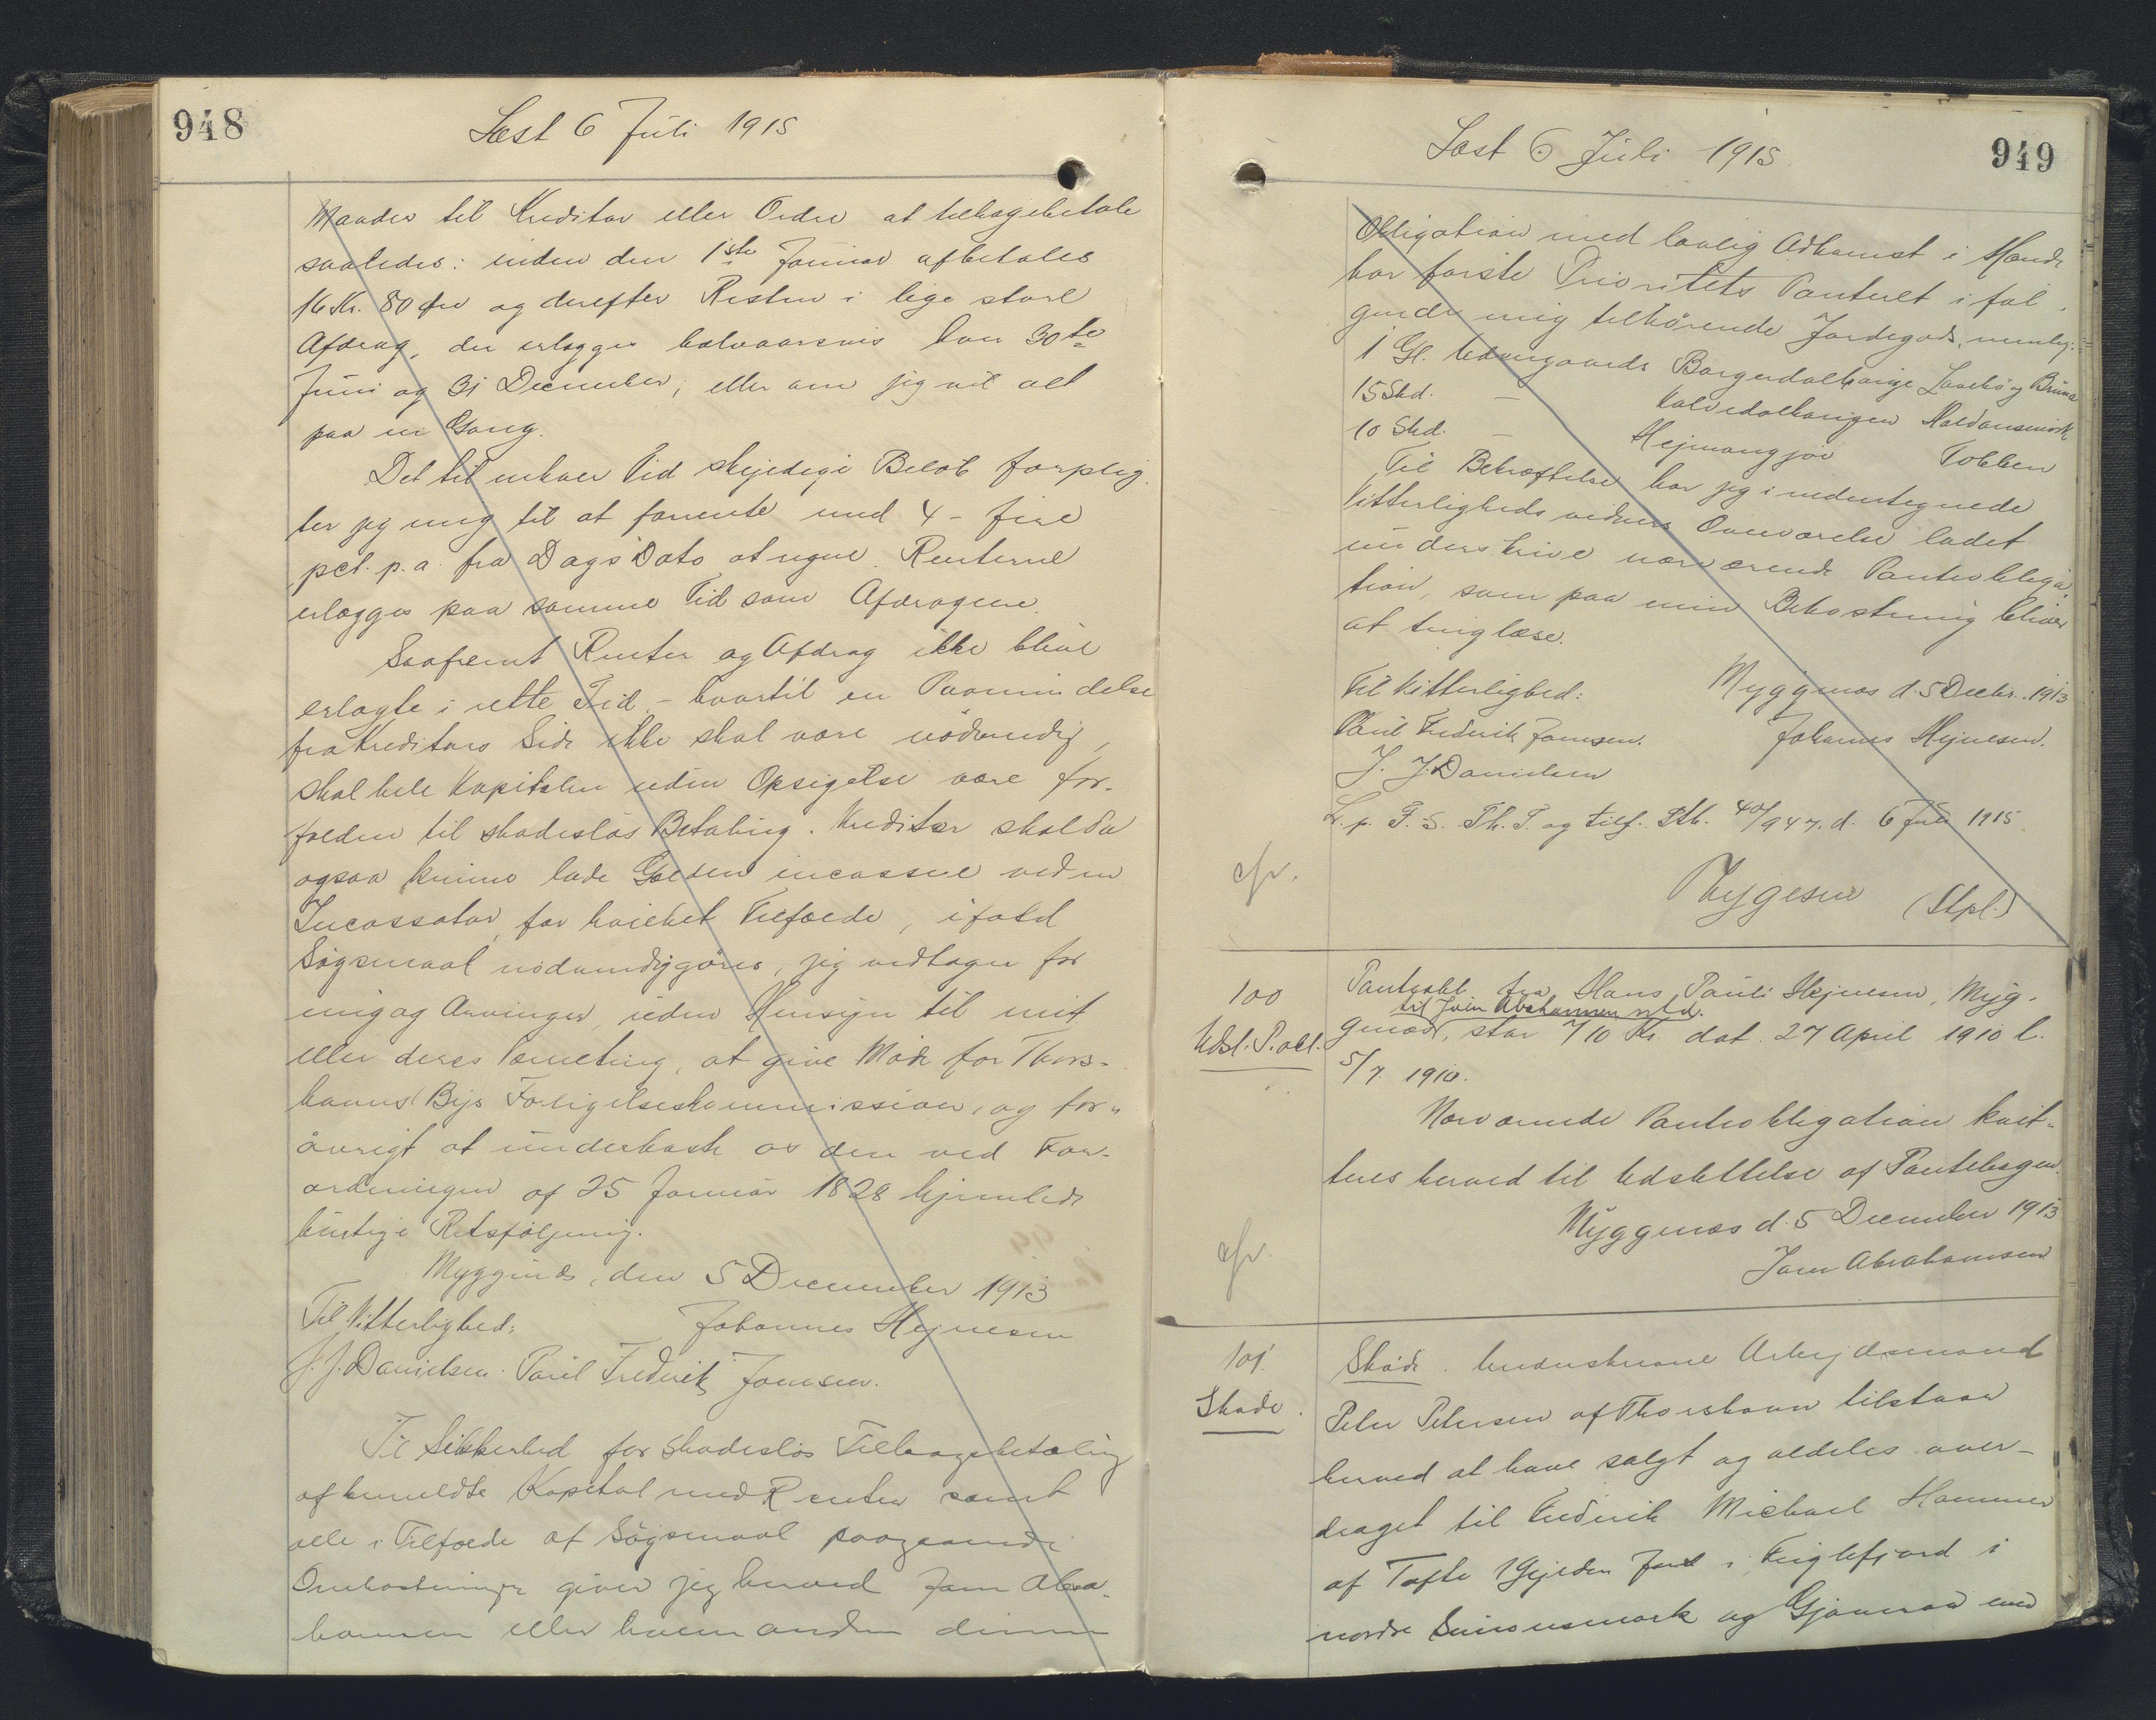 948
Læst 6 Juli 1915
Maader til Kreditor eller Ordre at tilbagebetale
saaledes: inden den 1ste Januar afbetales
16 Kr. 80 Øre og derefter Resten i lige store
Afdrag, der erlægges halvaarsvis hver 30te
Juni og 31 December, eller om jeg vil alt
paa en Gang.
Det til enhver Tid skyldige Beløb forplig-
ter jeg mig til at forrente med 4 - fire
pct. p.a. fra Dags Dato at regne. Renterne
erlægges paa samme Tid som Afdragene.
Saafremt Renter og Afdrag ikke blive
erlagte i rette Tid - hvortil en Paamindelse
fra Kreditors Side ikke skal være nødvendig,
skal hele Kapitalen uden Opsigelse være for-
falden til skadesløs Betaling. Kreditor skal da
ogsaa kunne lade Gælden incassere ved en
Incassator, for hvilket Tilfælde, ifald
Søgsmaal nødvendiggøres, jeg vedtager for
mig og Arvinger, uden Hensyn til mit
eller deres Værneting, at give Møde for Thors-
havns Bys Forligelseskommission, og for-
øvrigt at underkaste os den ved For-
ordningen af 25 Januar 1828 hjemlede
hurtige Retsfølgning.
Myggenæs, den 5 December 1913
Til Vitterlighed: Johannes Hejnesen
J. J. Danielsen. Poul Frederik Joensen.
Til Sikkerhed for skadesløs Tilbagebetaling
af bemeldte Kapital med Renter samt
alle i Tilfælde af Søgsmaal paagaaende
Omkostninger giver jeg herved Joen Abra-
hamsen eller hvem anden denne
949
Læst 6 Juli 1915
Obligation med lovlig Adkomst i Hænde
har første Prioritets Panteret i føl-
gende mig tilhørende Jordegods, nemlig:
1 Gl. Udmygaards
15 Skd. —
10 Skd. —
Til Bekræftelse har jeg i undertegnede
Vitterligheds vidners Overværelse ladet
underskrive nærværende Panteobliga-
tion, som paa min Bekostning bliver
at tinglæse.
Til Vitterlighed: Myggenæs d. 5 Decbr. 1913
Poul Frederik Joensen. Johannes Hejnesen.
J. J. Danielsen
L. p. F. S. Th. T. og tilf. Ptb. 40/947, d. 6 Juli 1915
cfr.
Thygesen (Stpl.)
100
Udsl. P. obl.
Panteobl. fra Hans Pauli Hejnesen, Myg-
til Joen Abrahamsen smstd.
genæs, stor 710 Kr. dat. 27 April 1910 l.
5/7 1910.
Nærværende Panteobligation kvit-
teres herved til Udslettelse af Pantebogen.
Myggenæs d. 5 December 1913
Joen Abrahamsen
cfr.
101.
Skøde.
Skøde. Underskrevne Arbejdsmand
Peter Petersen af Thorshavn tilstaar
herved at have solgt og aldeles over-
draget til Frederik Michael Hammer
af Tofte 1 Gylden Jord i Fuglefjord i
nordre og med